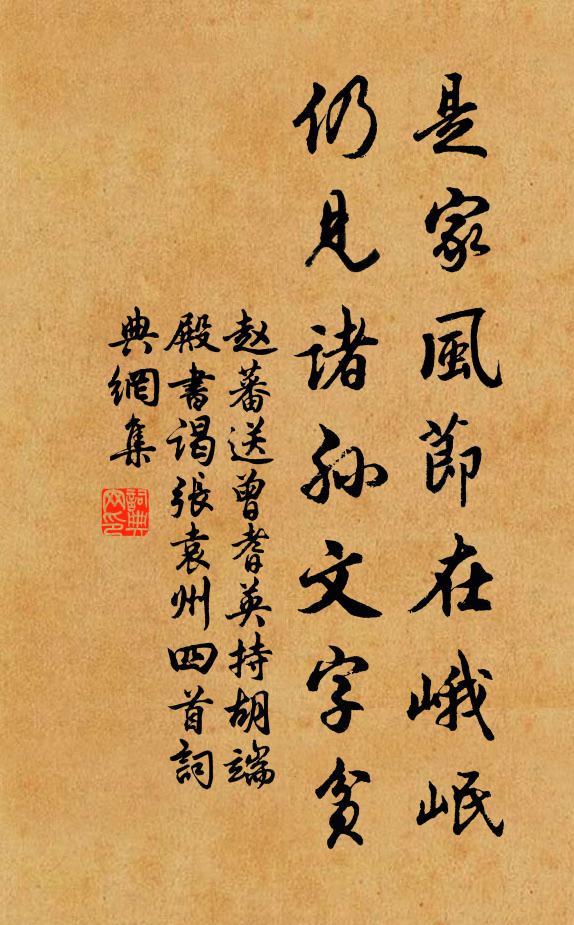 是家風節在峨岷
仍見諸孙文字貧
赵蕃送曾耆英持胡端
殿書谒張袁州四首詞
典網集
詞典網印